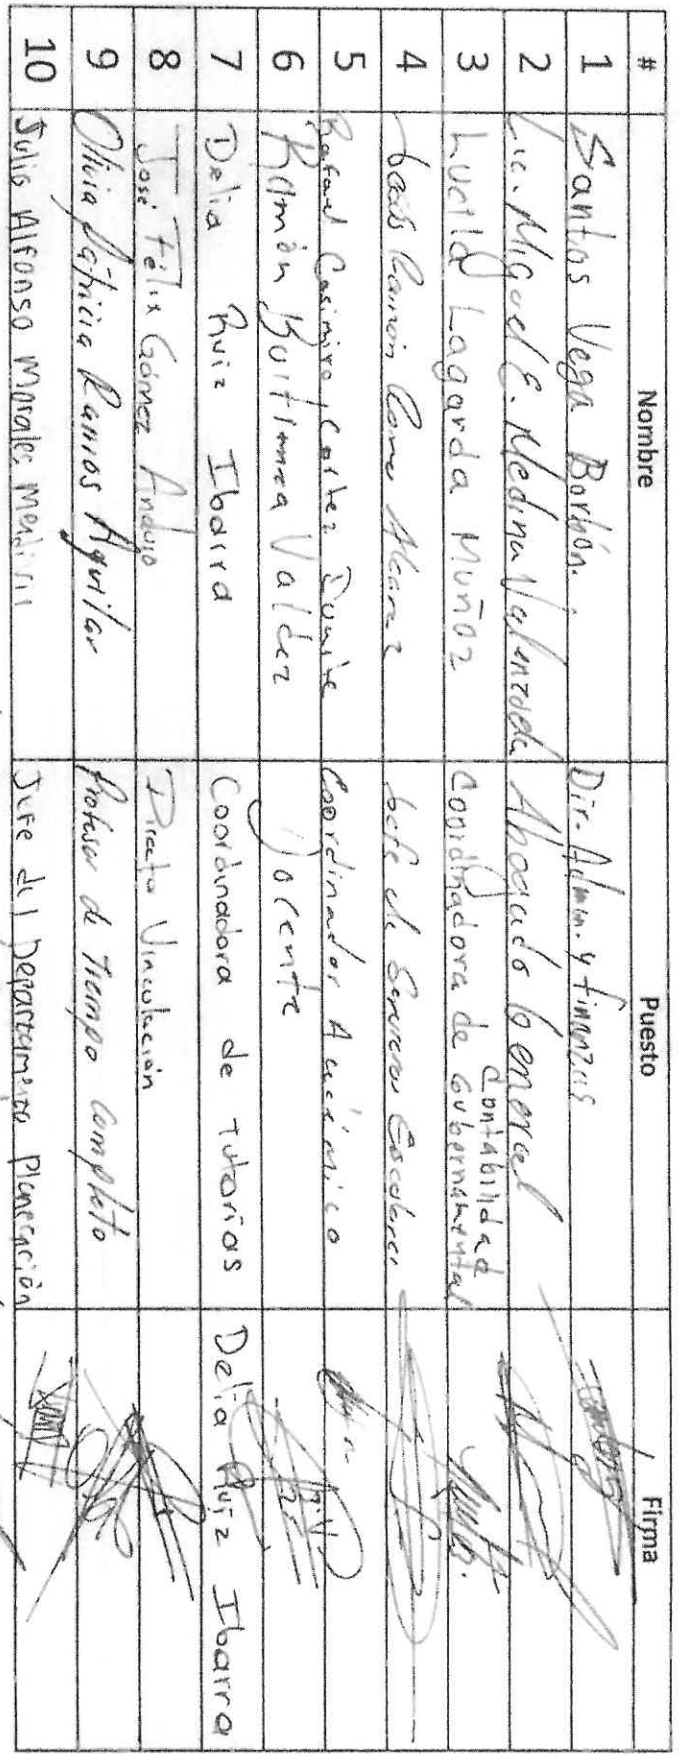 # Nombre Puesto Firma
1 Santos Vega Borbón. Dir. Admin. y Finanzas
2 Lic. Miguel E. Medina Valenzuela Abogado General
3 Lucila Lagarda Muñoz Coordinadora de Contabilidad Gubernamental
4 Ramón Jefe de Servicios Escolares
5 Rafael Casimiro Cortez Coordinador Académico
6 Ramón Buitimea Valdez Docente
7 Delia Ruiz Ibarra Coordinadora de Tutorías Delia Ruiz Ibarra
8 José Félix Gómez Andujo Director Vinculación
9 Olivia Patricia Ramos Aguilar Profesor de Tiempo Completo
10 Julio Alfonso Morales Jefe del Departamento Planeación